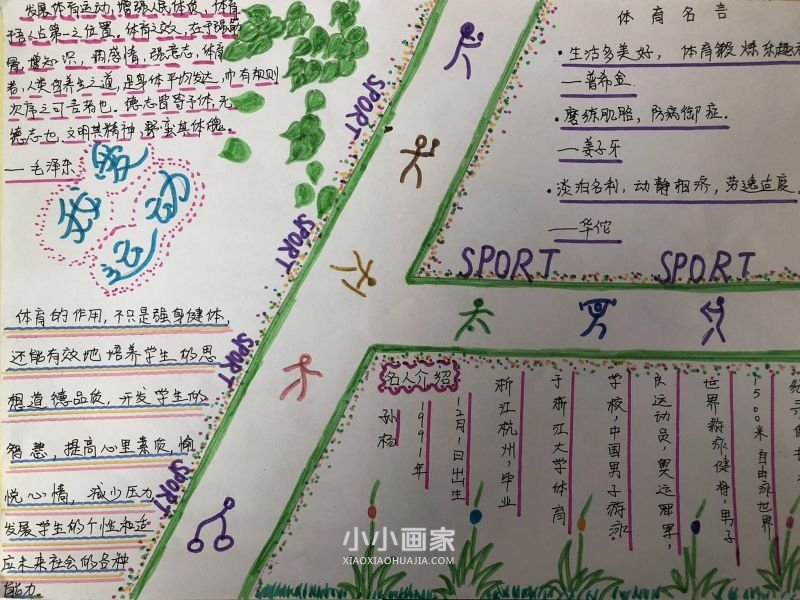 发展体育运动,增强人民体质,体育
于吾人占第一之位置。体育之效,在于强筋
骨,增知识,调感情,强意志,体育
者,人类自养生之道,是身体平均发达,而有规则
次序之可言者也。德志皆寄于体,无
德志也,文明其精神,野蛮其体魄。
——毛泽东
我爱
运动
体育的作用,不只是强身健体,
还能有效地培养学生的思
想道德品质,开发学生的
智慧,提高心里素质,愉
悦心情,减少压力,
发展学生的个性和适
应未来社会的各种
能力。
SPORT
SPORT
SPORT
SPORT
体育名言
·生活多美好,体育锻炼乐趣
——普希金.
·磨练肌胳,防病御症.
——姜子牙
·淡泊名利,动静相济,劳逸适度.
——华佗
SPORT SPORT
名人介绍
孙杨
1991年
12月1日出生
浙江杭州,毕业
于浙江大学体育
学校,中国男子游泳
队运动员,奥运冠军,
世界游泳健将,男子
1500米自由泳世界
小小画家
XIAOXIAOHUAJIA.COM